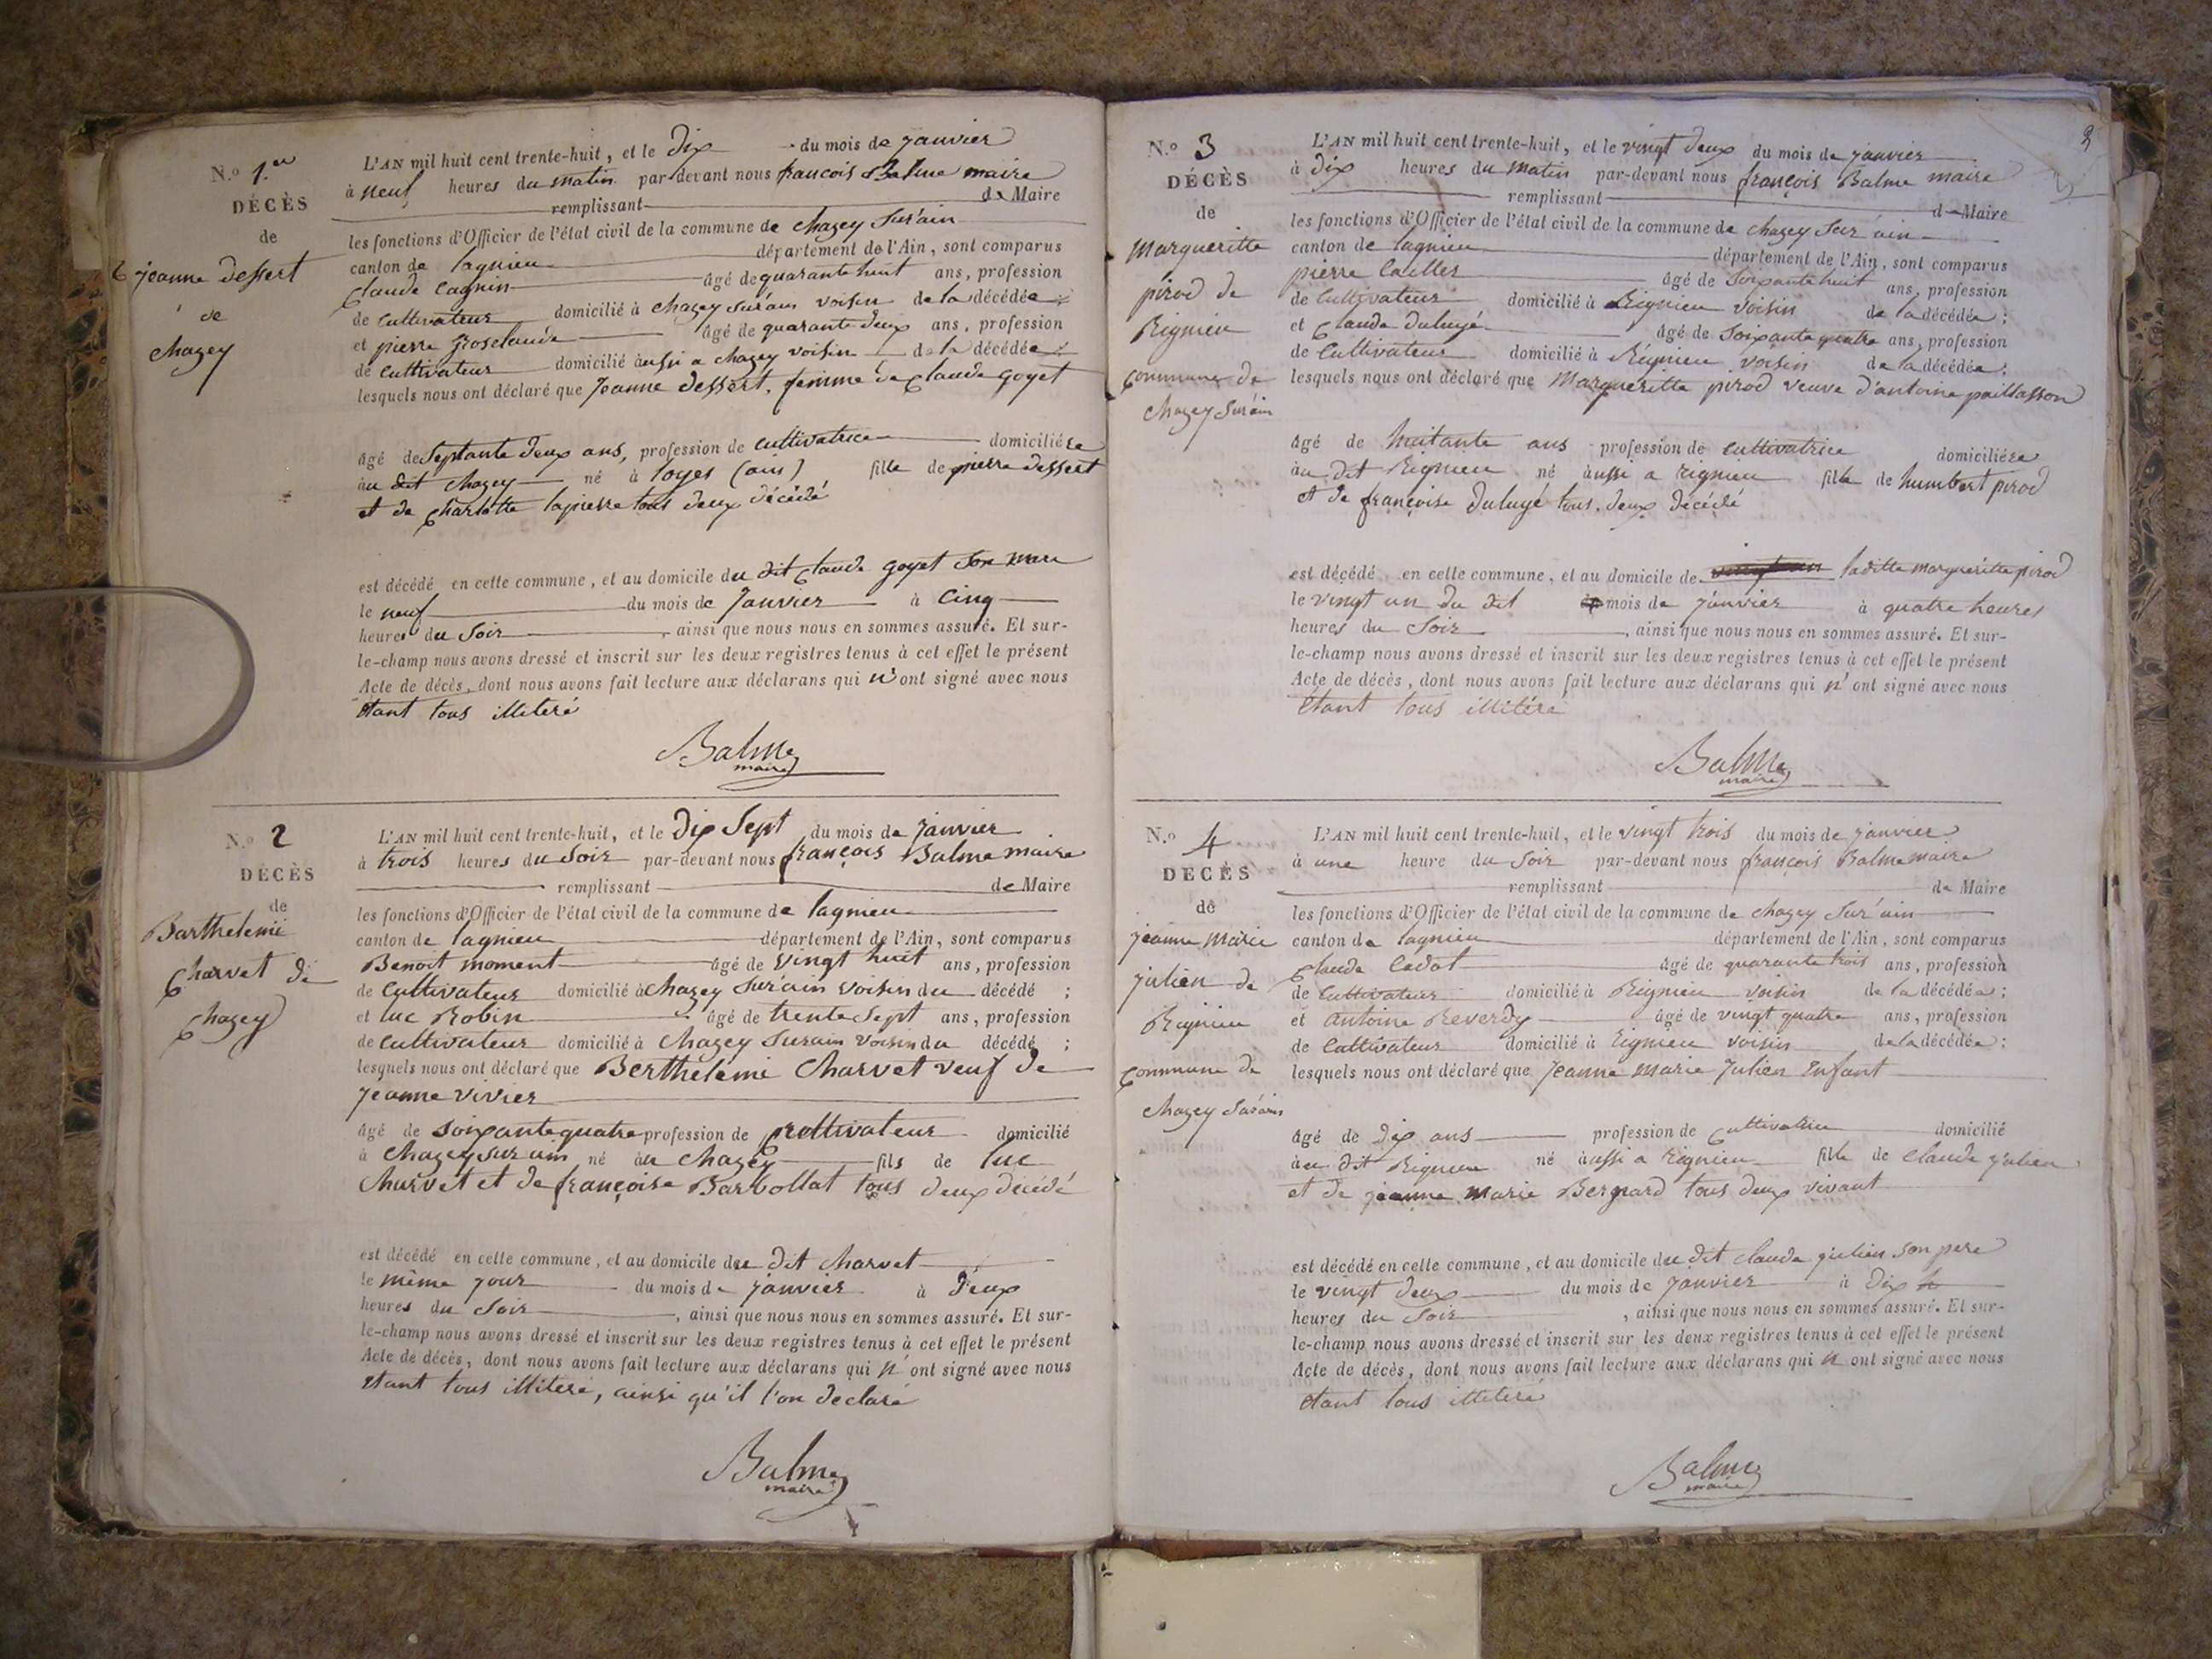 N.º 1.er
DÉCÈS
de
jeanne dessert
de
chazey
L'AN mil huit cent trente-huit, et le dix du mois de janvier
à neuf heures du matin par-devant nous francois Balme maire
remplissant de Maire
les fonctions d'Officier de l'état civil de la commune de chazey sur'ain
canton de lagnieu département de l'Ain, sont comparus
Claude Cagnin âgé de quarante huit ans, profession
de cultivateur domicilié à chazey sur'ain voisin de la décédée ;
et pierre grosclaude âgé de quarante deux ans, profession
de cultivateur domicilié aussi a chazey voisin de la décédée ;
lesquels nous ont déclaré que jeanne dessert, femme de claude goyet
âgé de septante deux ans, profession de cultivatrice domiciliére
au dit chazey né à loyes (ain) fille de pierre dessert
et de charlotte lapierre tous deux décédé
est décédé en cette commune, et au domicile du dit claude goyet son mari
le neuf du mois de janvier à cinq
heures du soir, ainsi que nous nous en sommes assuré. Et sur-
le-champ nous avons dressé et inscrit sur les deux registres tenus à cet effet le présent
Acte de décès, dont nous avons fait lecture aux déclarans qui n'ont signé avec nous
étant tous illiteré
Balme
maire
N.º 2
DÉCÈS
de
Barthelemi
Charvet de
Chazey
L'AN mil huit cent trente-huit, et le dix sept du mois de janvier
à trois heures du soir par-devant nous françois Balme maire
remplissant de Maire
les fonctions d'Officier de l'état civil de la commune de lagnieu
canton de lagnieu département de l'Ain, sont comparus
Benoit moment âgé de vingt huit ans, profession
de cultivateur domicilié à chazey sur'ain voisin du décédé ;
et luc Robin âgé de trente sept ans, profession
de cultivateur domicilié à chazey surain voisin du décédé ;
lesquels nous ont déclaré que Berthelemi Charvet veuf de
jeanne vivier
âgé de soixante quatre profession de cultivateur domicilié
à chazey sur ain né au chazey fils de luc
charvet et de françoise Barbollat tous deux décédé
est décédé en cette commune, et au domicile du dit charvet
le même jour du mois de janvier à deux
heures du soir, ainsi que nous nous en sommes assuré. Et sur-
le-champ nous avons dressé et inscrit sur les deux registres tenus à cet effet le présent
Acte de décès, dont nous avons fait lecture aux déclarans qui n'ont signé avec nous
étant tous illiteré, ainsi qu'il l'on declaré
Balme
maire
3
N.º 3
DÉCÈS
de
Margueritte
pirod de
Rignieu
commune de
chazey sur'ain
L'AN mil huit cent trente-huit, et le vingt deux du mois de janvier
à dix heures du matin par-devant nous françois Balme maire
remplissant de Maire
les fonctions d'Officier de l'état civil de la commune de chazey sur'ain
canton de lagnieu département de l'Ain, sont comparus
pierre Cailler âgé de soixante huit ans, profession
de cultivateur domicilié à Rignieu voisin de la décédée ;
et claude dulugé âgé de soixante quatre ans, profession
de cultivateur domicilié à Rignieu voisin de la décédée ;
lesquels nous ont déclaré que Margueritte pirod veuve d'antoine paillasson
âgé de huitante ans profession de cultivatrice domiciliére
au dit Rignieu né aussi a rignieu fille de humbert pirod
et de françoise dulugé tous deux décédé
est décédé en cette commune, et au domicile de laditte margueritte pirod
le vingt un du dit mois de janvier à quatre heures
heures du soir, ainsi que nous nous en sommes assuré. Et sur-
le-champ nous avons dressé et inscrit sur les deux registres tenus à cet effet le présent
Acte de décès, dont nous avons fait lecture aux déclarans qui n'ont signé avec nous
étant tous illitéré
Balme
maire
N.º 4
DÉCÈS
de
jeanne marie
julien de
Rignieu
commune de
chazey sur'ain
L'AN mil huit cent trente-huit, et le vingt trois du mois de janvier
à une heure du soir par-devant nous françois Balme maire
remplissant de Maire
les fonctions d'Officier de l'état civil de la commune de chazey sur'ain
canton de lagnieu département de l'Ain, sont comparus
Claude Cadot âgé de quarante trois ans, profession
de cultivateur domicilié à Rignieu voisin de la décédée ;
et antoine Reverdy âgé de vingt quatre ans, profession
de cultivateur domicilié à rignieu voisin de la décédée ;
lesquels nous ont déclaré que jeanne marie julien enfant
âgé de dix ans profession de cultivatrice domicilié
au dit Rignieu né aussi a rignieu fille de claude julien
et de jeanne marie Bernard tous deux vivant
est décédé en cette commune, et au domicile du dit claude julien son pere
le vingt deux du mois de janvier à dix
heures du soir, ainsi que nous nous en sommes assuré. Et sur-
le-champ nous avons dressé et inscrit sur les deux registres tenus à cet effet le présent
Acte de décès, dont nous avons fait lecture aux déclarans qui n ont signé avec nous
étant tous illiteré
Balme
maire